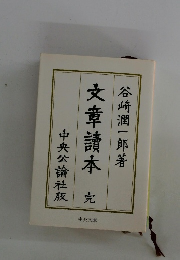 谷崎潤一郎著
文章讀本 完
中央公論社版
中央文庫